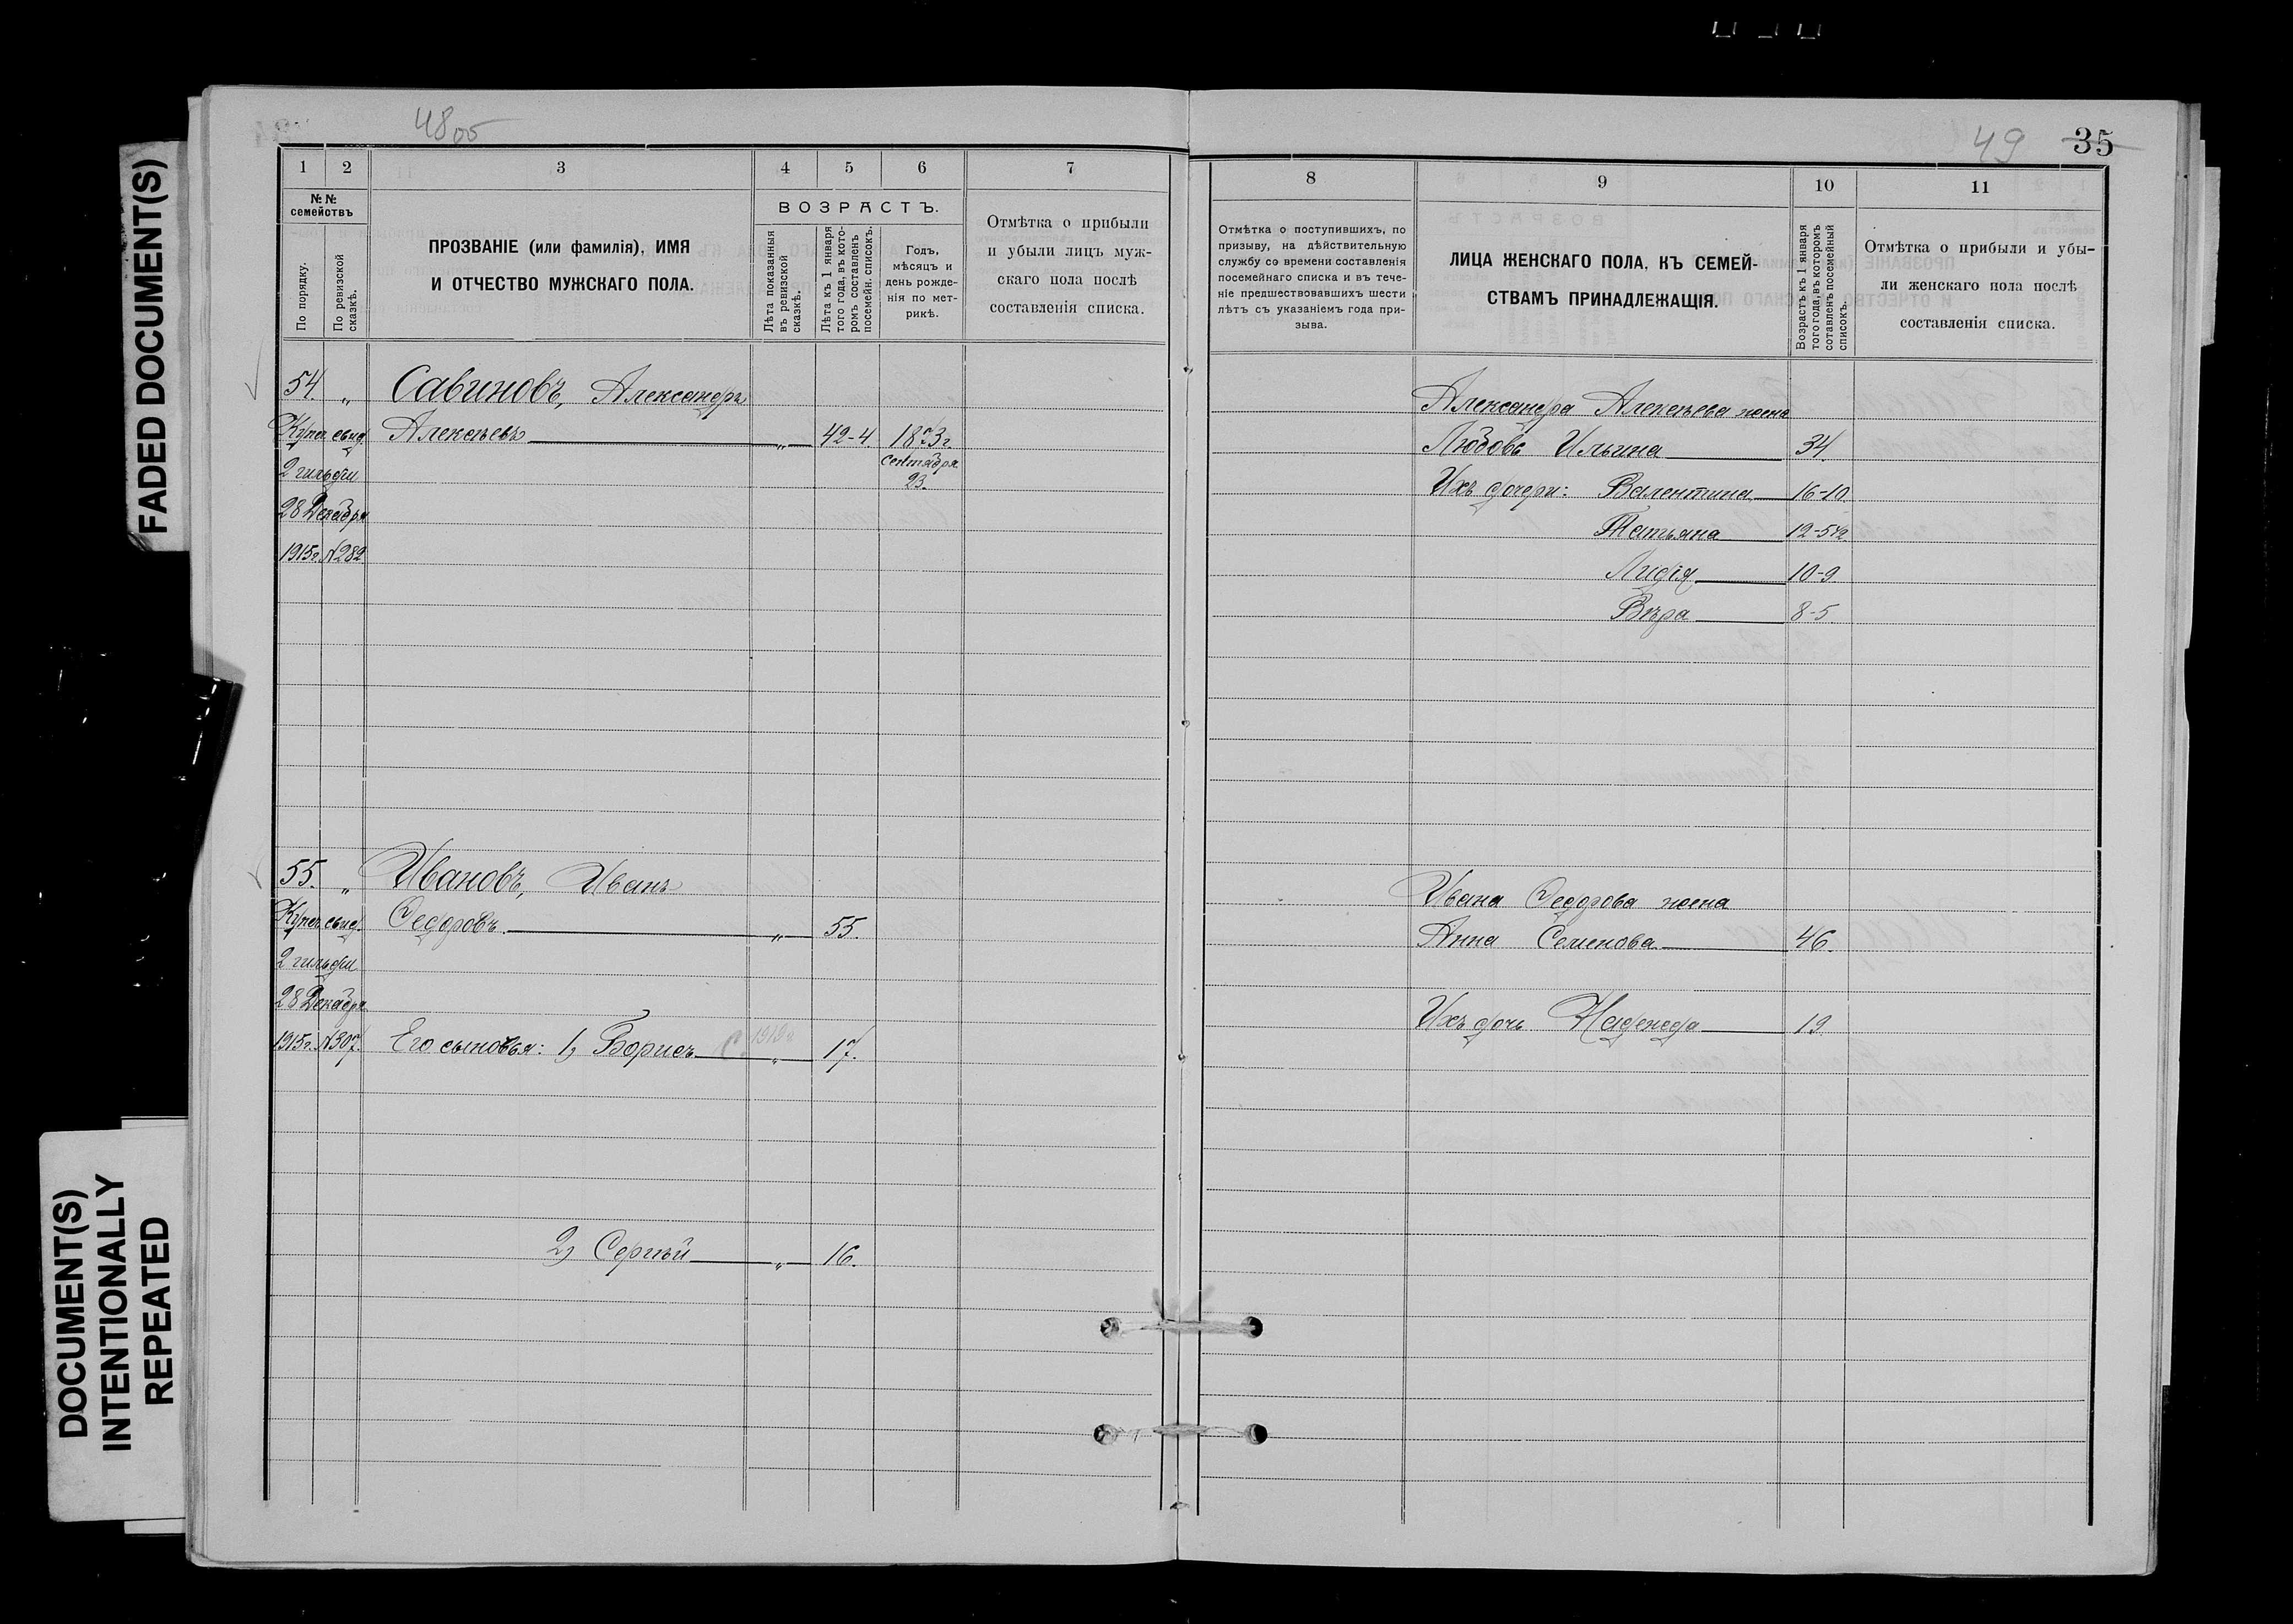 FADED DOCUMENT(S)
DOCUMENT(S)
INTENTIONALLY
REPEATED
48об
1 2 3 4 5 6 7
№№
семействъ
По порядку.
По ревизской
сказкѣ.
ПРОЗВАНІЕ (или фамилія), ИМЯ
И ОТЧЕСТВО МУЖСКАГО ПОЛА.
ВОЗРАСТЪ.
Лѣта показанныя
въ ревизской
сказкѣ.
Лѣта къ 1 января
того года, въ кото-
ромъ составленъ
посемейн. списокъ.
Годъ,
мѣсяцъ и
день рожде-
нія по мет-
рикѣ.
Отмѣтка о прибыли
и убыли лицъ муж-
скаго пола послѣ
составленія списка.
54. „ Савиновъ, Александръ
Купеч. свид. Алексѣевъ „ 42-4. 1873г.
2 гильдіи сентября
23.
28 Декабря
1915г. №282
55. „ Ивановъ, Иванъ
Купеч. свид. Ѳедоровъ. „ 55.
2 гильдіи
28 Декабря
1915г. №307. Его сыновья: 1, Борисъ 1919г „ 17.
2, Сергѣй „ 16.
49 35
8 9 10 11
Отмѣтка о поступившихъ, по
призыву, на дѣйствительную
службу со времени составленія
посемейнаго списка и въ тече-
ніе предшествовавшихъ шести
лѣтъ съ указаніемъ года при-
зыва.
ЛИЦА ЖЕНСКАГО ПОЛА, КЪ СЕМЕЙ-
СТВАМЪ ПРИНАДЛЕЖАЩІЯ.
Возрастъ къ 1 января
того года, въ которомъ
составленъ посемейный
списокъ.
Отмѣтка о прибыли и убы-
ли женскаго пола послѣ
составленія списка.
Александра Алексѣева жена
Любовь Ильина 34.
Ихъ дочери: Валентина 16-10
Татьяна 12-5½
Лидія 10-9
Вѣра 8-5
Ивана Ѳедорова жена
Анна Семенова 46.
Ихъ дочь Надежда 19